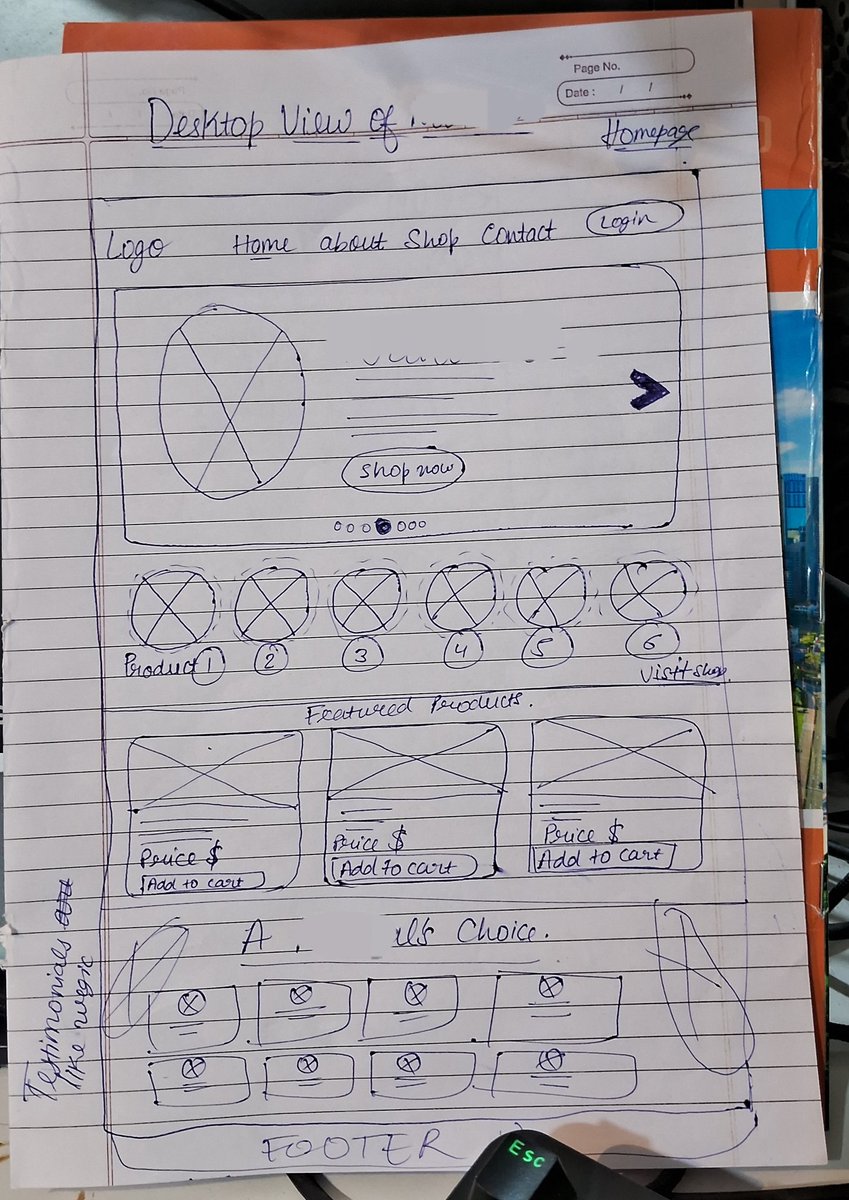 Page No.
Date : / /
Desktop View of
Homepage
Logo Home about Shop Contact Login
Shop now
Product 1 2 3 4 5 6
Visit shop
Featured Products.
Price $ Price $ Price $
Add to cart Add to cart Add to cart
A Choice.
Testimonials
like
FOOTER
Esc